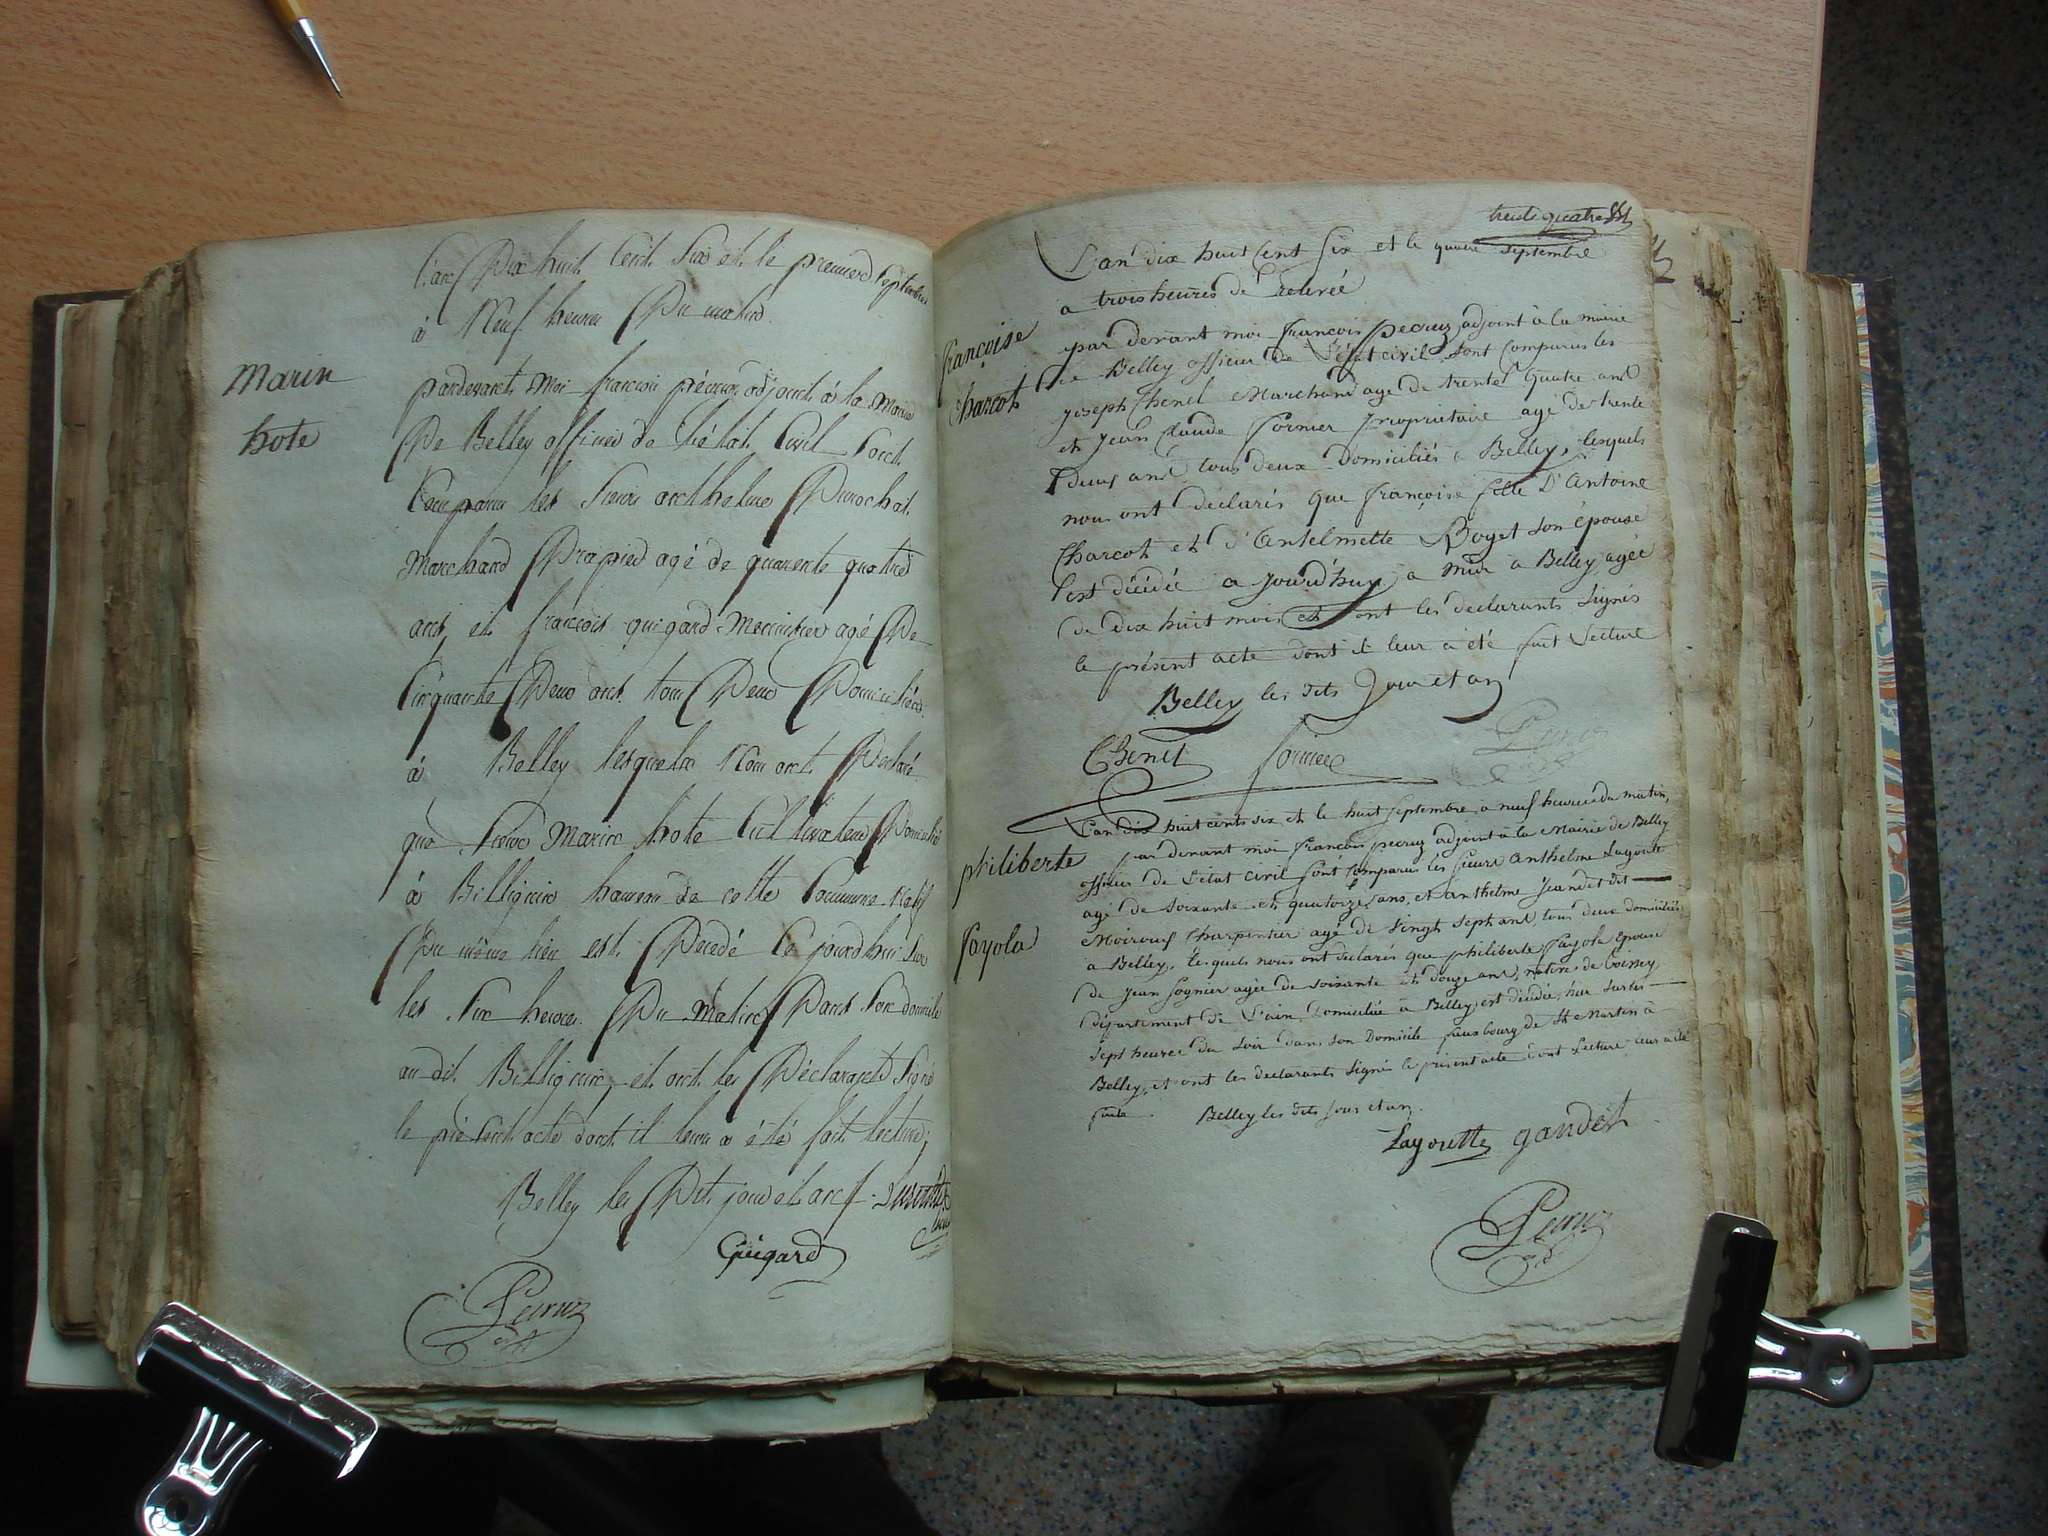 L'an Dix huit Cent Six et le premier Septembre
à Neuf heures Du matin
Marin
hote
pardevant Moi françois pécruz adjoint à la Mairie
De Belley officier de l'état Civil Sont
Comparus les Sieurs anthelme Durochat
Marchand Drapied agé de quarente quatre
ans et françois guigard Menuisier agé De
Cinquante Deux ans tous Deux Domiciliés
à Belley lesquels Nous ont Déclaré
que Sieur Marin hote Cultivateur Domicilié
à Billignin hameau de cette Commune Natif
Du même lieu est Décedé Ce jourd'hui Sur
les Six heures Du Matin Dans Son domicile
au dit Billignin, et ont les Déclarants Signé
le présent acte dont il leur a été fait lecture;
Belley les Dit jour et an
Guigard
Pecruz
adjt
trente quatre
L'an dix huit Cent Six et le quatre septembre
a trois heures de relevée
françoise
Charcot
par devant moi françois Pecruz adjoint à la mairie
de Belley officier de l'état civil sont comparus les
joseph Chenel Marchand agé de trente quatre ans
et jean Claude Fornier propriétaire agé de trente
Deux ans, tous deux Domiciliés à Belley, lesquels
nous ont déclarés que françoise fille D'Antoine
Charcot et d'Antelmette Boget son épouse
est décédée a jourd'huy a midi a Belley agée
de dix huit mois et ont les declarants Signés
le présent acte dont il leur a été fait Lecture
Belley les dits Jour et an
Chenel
Pecruz
L'an dix huit cents six et le huit Septembre a neuf heures du matin,
philiberte
par devant moi françois pecruz adjoint à la Mairie de Belley
officier de L'état Civil Sont comparus les sieurs Anthelme Layoutte
agé de soixante et quatorze ans, et Anthelme Jeandet dit
Moiroud Charpentier agé de Vingt Sept ans, tous deux domiciliés
fayola
a Belley, Lesquels nous ont declarés que philiberte fayola épouse
de jean Fognier agée de soixante et douze ans, native de
département de L'ain, Domiciliée à Belley, est décédée, hier sur les
sept heures du soir dans son Domicile faux bourg de St Martin à
Belley, et ont les declarants signés le présent acte dont Lecture leur a été
faite. Belley les dits jour et an.
Layoutte gandet
Pecruz
adt